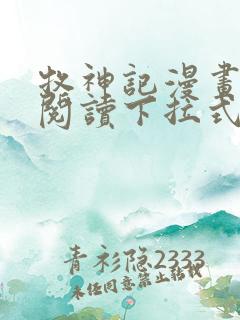 牧神記漫畫
閱讀下拉式
青衫隐2333
未任同意禁止轉載